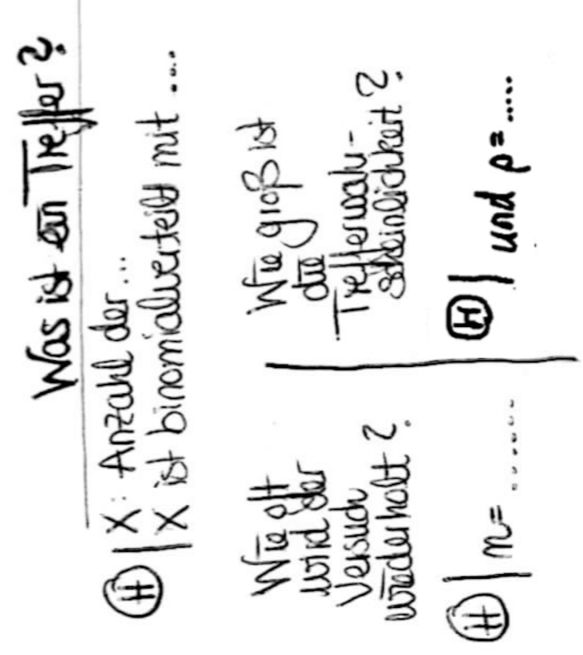 Was ist ein Treffer?
(H) | X: Anzahl der...
X ist binomialverteilt mit ...
Wie oft
wird der
Versuch
wiederholt?
(H) | n= .......
Wie groß ist
die
Trefferwahr-
scheinlichkeit?
(H) | und p=.....